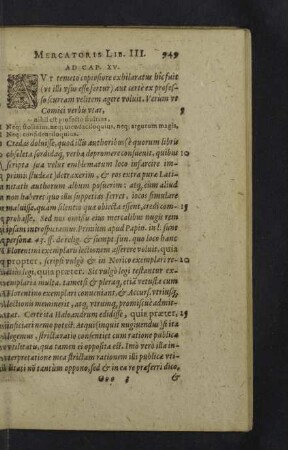 MERCATORIS LIB. III. 949
AD CAP. XV.
AVt temeto copiosiore exhilaratus hic fuit
(vt illi vsus esse fertur) aut certè ex profes-
so scurram velitem agere voluit. Verùm vt
Comici verbis vtar, 5
nihil est profectò stultius,
Neq; stolidius, neq; mendaciloquius, neq; argutum magis,
Neq; confidentiloquius.
Credas doluisse, quòd illis authoribus è quorum libris
obsoleta, sordidaq; verba depromere consuevit, quibus 10
scripta sua velut emblematum loco infarcire im-
primis studet, deterserim, & eos extra pura Lati-
nitatis authorum album posuerim: atq; eius aliud
non haberet quo illis suppetias ferret, iocos simulare
maluisse, quàm silentio quæ obiecta essent, credi com- 15
probasse. Sed nos omissis eius mercalibus nugis rem
ipsam introspiciamus Primùm apud Papin. in l. sunt
personæ 43. ff. de relig. & sumpt. fun. quo loco hanc
Florentini exemplaris lectionem asserere voluit, quia
propter, scripsi vulgò & in Norico exemplari re- 20
legi, quia præter. Sic vulgò legi testantur ex-
emplaria multa. tametsi & pleraq; etiā vetusta cum
Florentino exemplari conveniant, & Accurs. vtriusq;
lectionis meminerit, atq; vtrumq; promiscuè admit-
tat. Certè ita Haloandrum edidisse, quia præter, 25
inficiari nemo potest. Atqui, inquit nugivendus si ita
legemus, strictæ ratio consentiet cum ratione publicæ
vtilitatis, quæ tamen ei opposita est. Imò verò illa in-
terpretatione mea strictam rationem illi publicæ vti-
litati nō tantùm oppono, sed & in ea re præferri dico,
Ooo 3 &